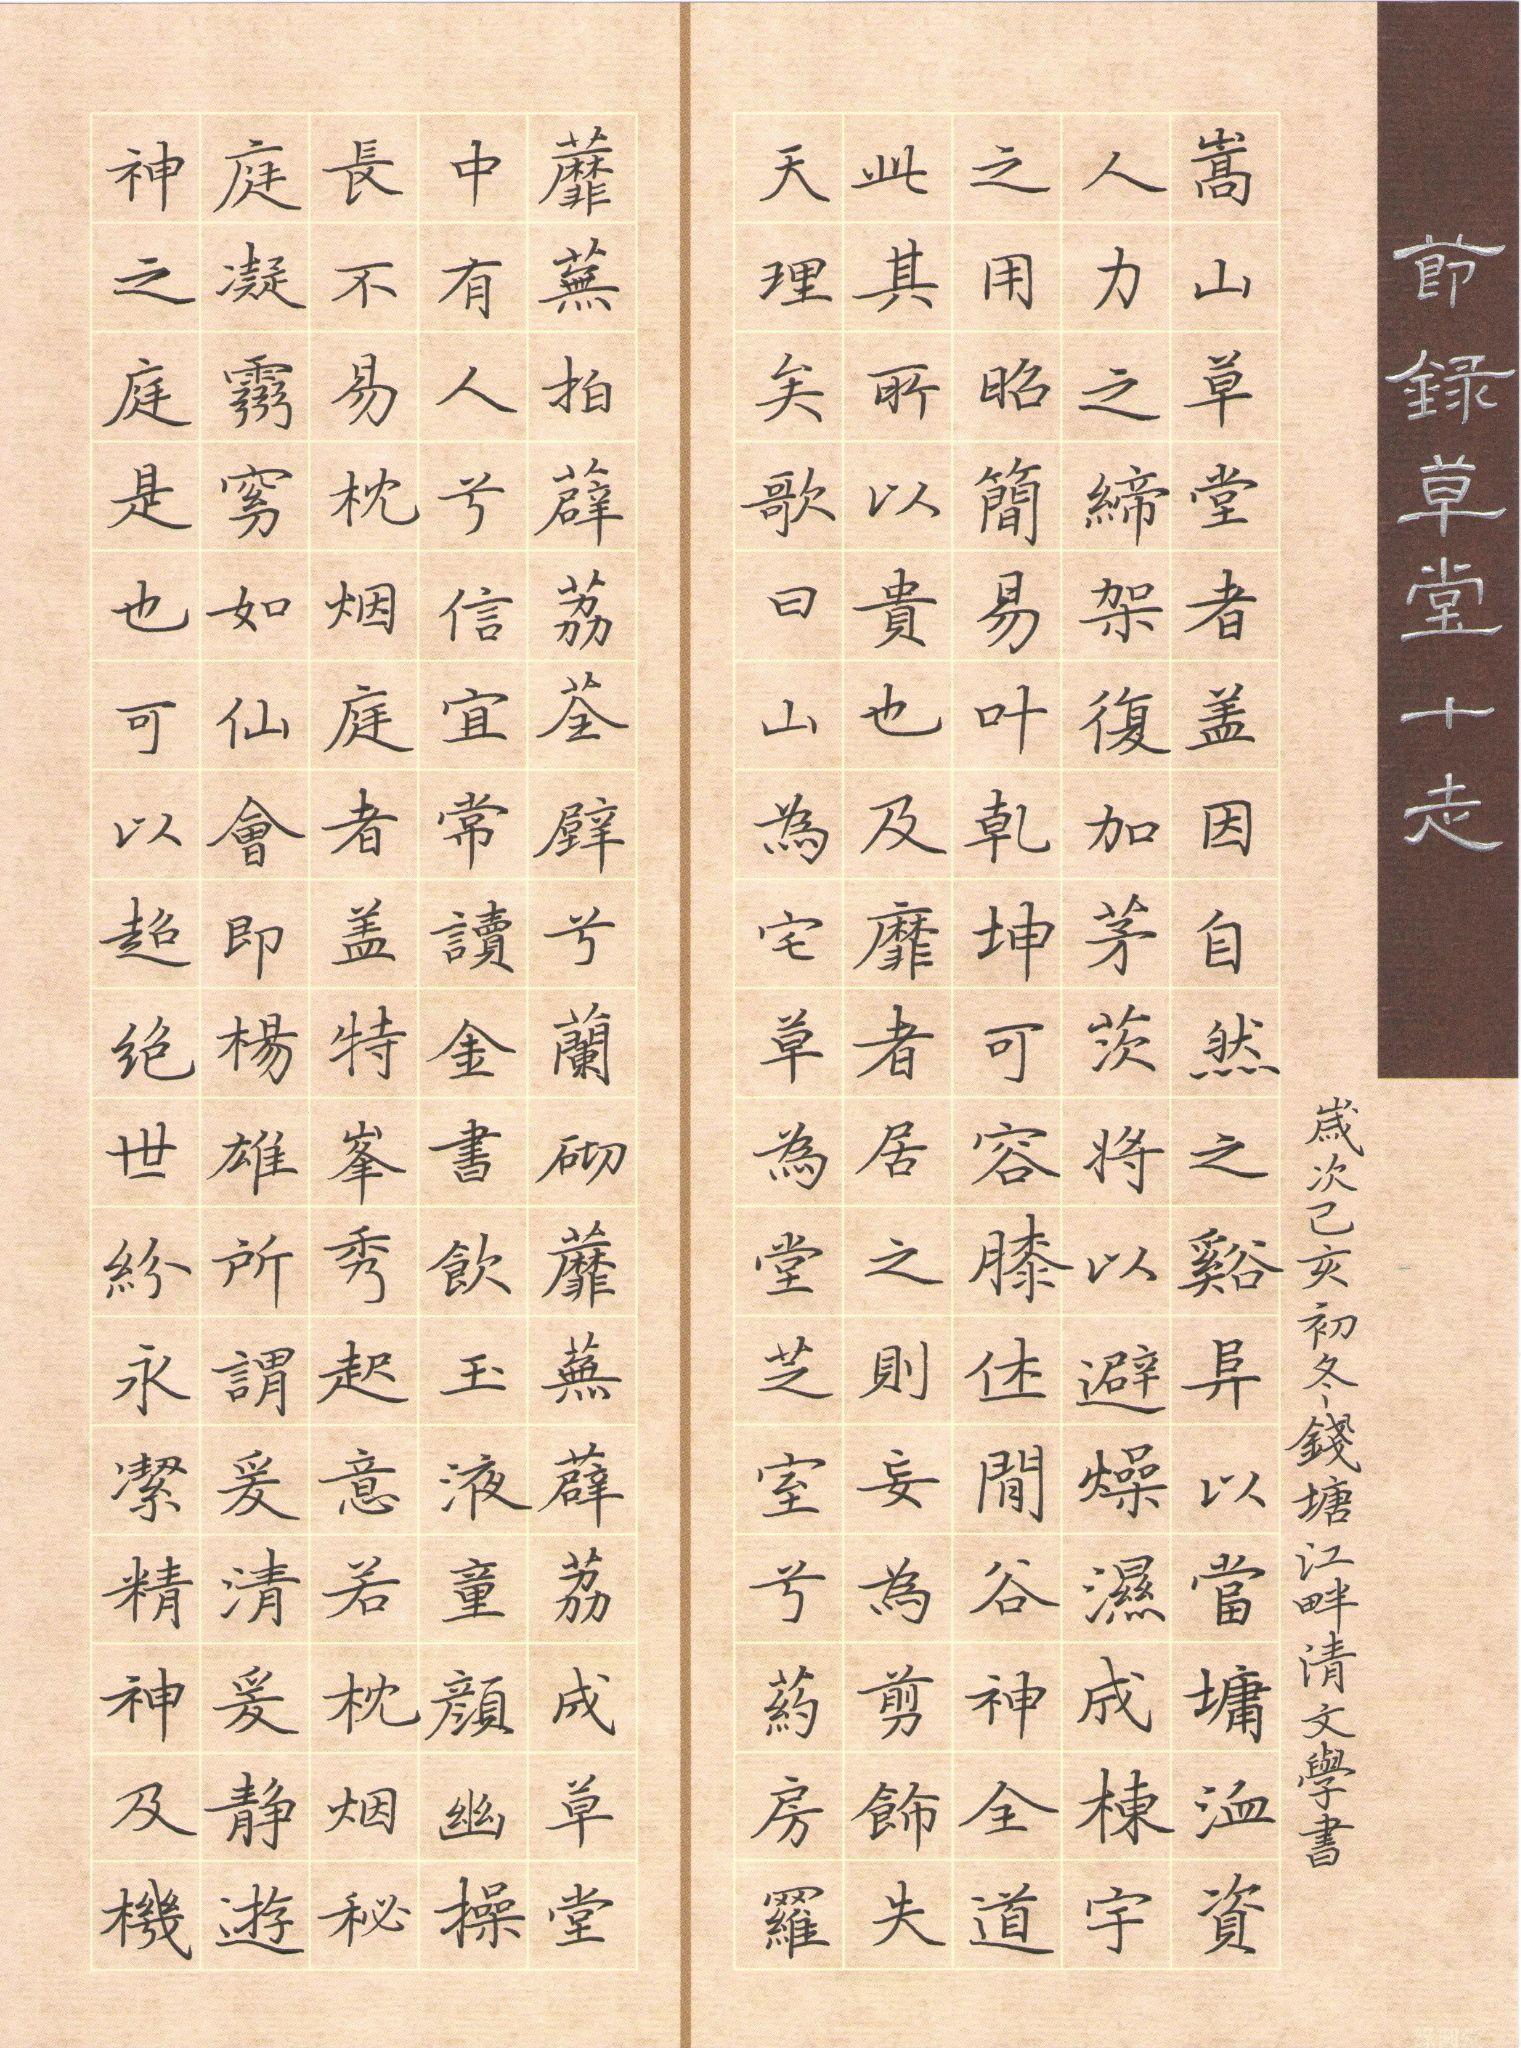 節録草堂十志
歲次己亥初冬錢塘江畔清文學書
嵩山草堂者盖因自然之谿阜以當墉洫資
人力之締架復加茅茨將以避燥濕成棟宇
之用昭簡易叶乾坤可容膝休閒谷神全道
此其所以貴也及靡者居之則妄為剪飾失
天理矣歌曰山為宅草為堂芝室兮葯房羅
蘼蕪拍薜荔荃壁兮蘭砌蘼蕪薜荔成草堂
中有人兮信宜常讀金書飲玉液童顔幽操
長不易枕烟庭者盖特峯秀起意若枕烟秘
庭凝霧窈如仙會即楊雄所謂爰清爰静遊
神之庭是也可以超绝世紛永潔精神及機